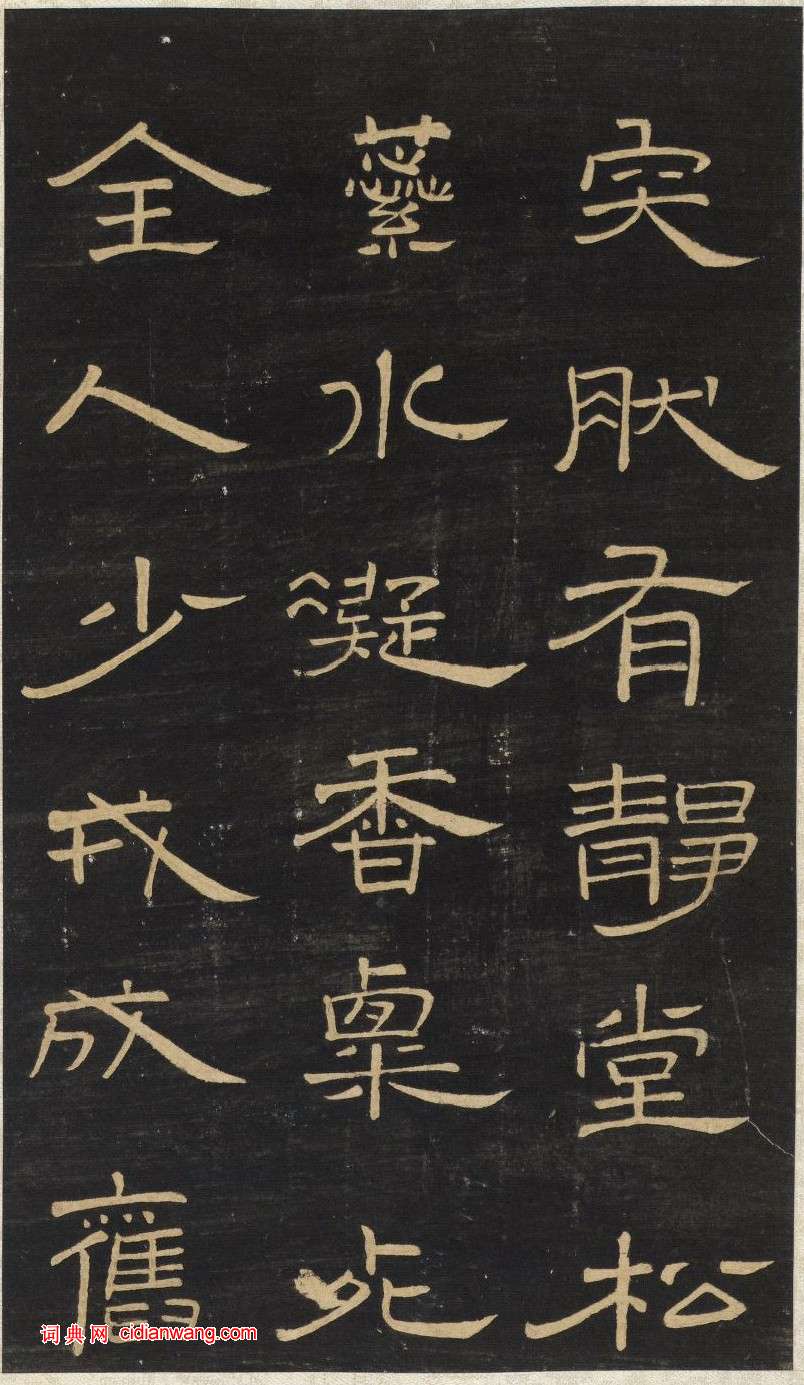 突然有靜堂松
蘂水凝香栗
全人少戎成舊
词典网 cidianwang.com